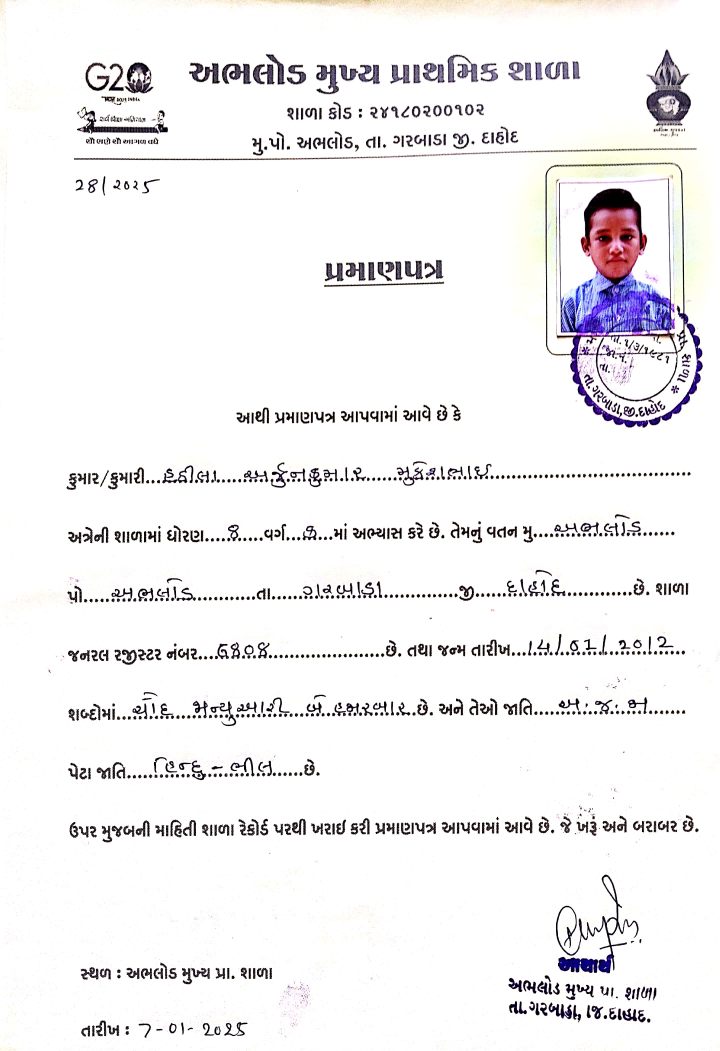 G20
અભલોડ મુખ્ય પ્રાથમિક શાળા
શાળા કોડ : ૨૪૧૮૦૨૦૦૧૦૨
સર્વ શિક્ષા અભિયાન
સૌ ભણે સૌ આગળ વધે
મુ.પો. અભલોડ, તા. ગરબાડા જી. દાહોદ
28/2025
પ્રમાણપત્ર
તા. ૧/૩/૧૯૮૧
તા. ગરબાડા, જી. દાહોદ
આથી પ્રમાણપત્ર આપવામાં આવે છે કે
કુમાર/કુમારી...હઠીલા અર્જુનકુમાર મુકેશભાઇ...
અત્રેની શાળામાં ધોરણ...8...વર્ગ...માં અભ્યાસ કરે છે. તેમનું વતન મુ...અભલોડ...
પો...અભલોડ...તા...ગરબાડા...જી...દાહોદ...છે. શાળા
જનરલ રજીસ્ટર નંબર...છે. તથા જન્મ તારીખ...14/01/2012...
શબ્દોમાં...ચૌદ જાન્યુઆરી બે હજારબાર...છે. અને તેઓ જાતિ...અ.જ.જા...
પેટા જાતિ...હિન્દુ - ભીલ...છે.
ઉપર મુજબની માહિતી શાળા રેકોર્ડ પરથી ખરાઇ કરી પ્રમાણપત્ર આપવામાં આવે છે. જે ખરૂં અને બરાબર છે.
આચાર્ય
સ્થળ : અભલોડ મુખ્ય પ્રા. શાળા
અભલોડ મુખ્ય પ્રા. શાળા
તા. ગરબાડા, જિ. દાહોદ.
તારીખ : 7-01-2025